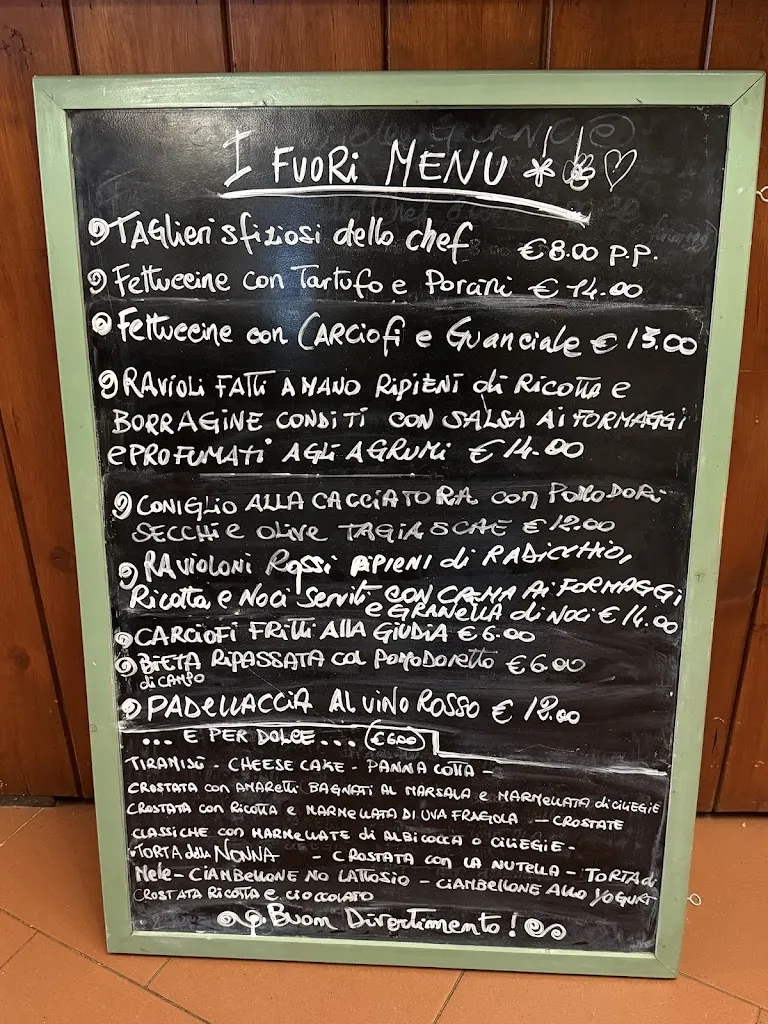 I FUORI MENU
TAGLIERI SFIZIOSI dello chef € 8.00 P.P.
Fettuccine con Tartufo e Porcini € 14.00
Fettuccine con CARCIOFI e Guanciale € 13.00
RAVIOLI FATTI A MANO RIPIENI di RICOTTA e
BORRAGINE CONDITI CON SALSA AI FORMAGGI
e PROFUMATI AGLI AGRUMI € 14.00
CONIGLIO ALLA CACCIATORA con POMODORI
SECCHI e OLIVE TAGIASCAE € 12.00
RAVIOLONI ROSSI RIPIENI di RADICCHIO,
Ricotta e Noci Serviti CON CREMA AI FORMAGGI
e GRANELLA di NOCI € 14.00
CARCIOFI FRITTI ALLA GIUDIA € 6.00
BIETA RIPASSATA col POMODORETTO € 6.00
di CAMPO
PADELLACCIA AL VINO ROSSO € 12.00
... E PER DOLCE ... € 6.00
TIRAMISÙ - CHEESE CAKE - PANNA COTTA -
CROSTATA con AMARETTI BAGNATI AL MARSALA e MARMELLATA di CILIEGIE
CROSTATA con RICOTTA e MARMELLATA DI UVA FRAGOLA - CROSTATE
CLASSICHE con MARMELLATE di ALBICOCCA o CILIEGIE -
TORTA della NONNA - CROSTATA con LA NUTELLA - TORTA di
Mele - CIAMBELLONE NO LATTOSIO - CIAMBELLONE ALLO YOGURT
CROSTATA RICOTTA E CIOCCOLATO
Buon Divertimento!